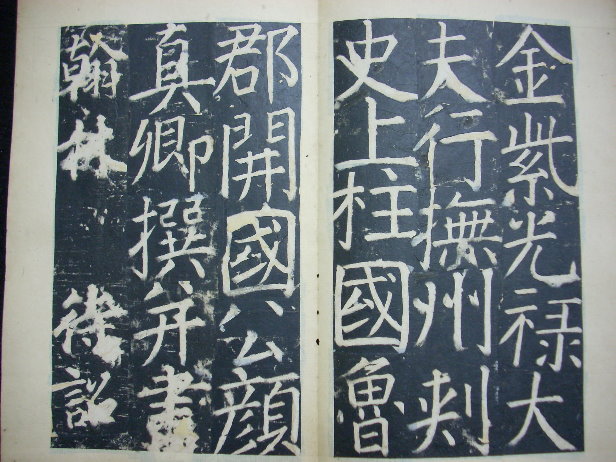 金紫光禄大
夫行撫州刾
史上柱國魯
郡開國公顔
真卿撰并書
翰林待詔